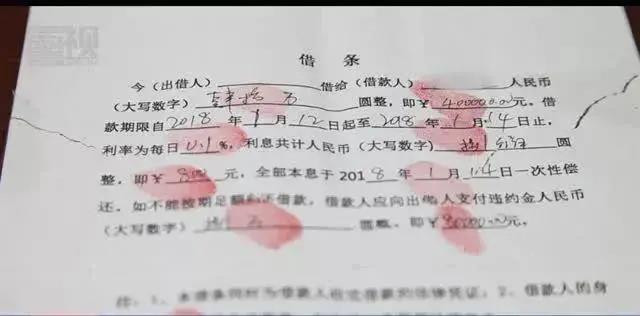 借 条
今（出借人）借给（借款人）人民币
（大写数字）肆拾万圆整，即￥400000.00元。借
款期限自2018年1月12日起至2018年1月14日止，
利率为每日0.1%，利息共计人民币（大写数字）圆
整，即￥800元，全部本息于2018年1月14日一次性偿
还。如不能按期足额归还借款，借款人应向出借人支付违约金人民币
（大写数字）圆整，即￥元。
注：1、本借条同时为借款人收讫借款的法律凭证；2、借款人的身